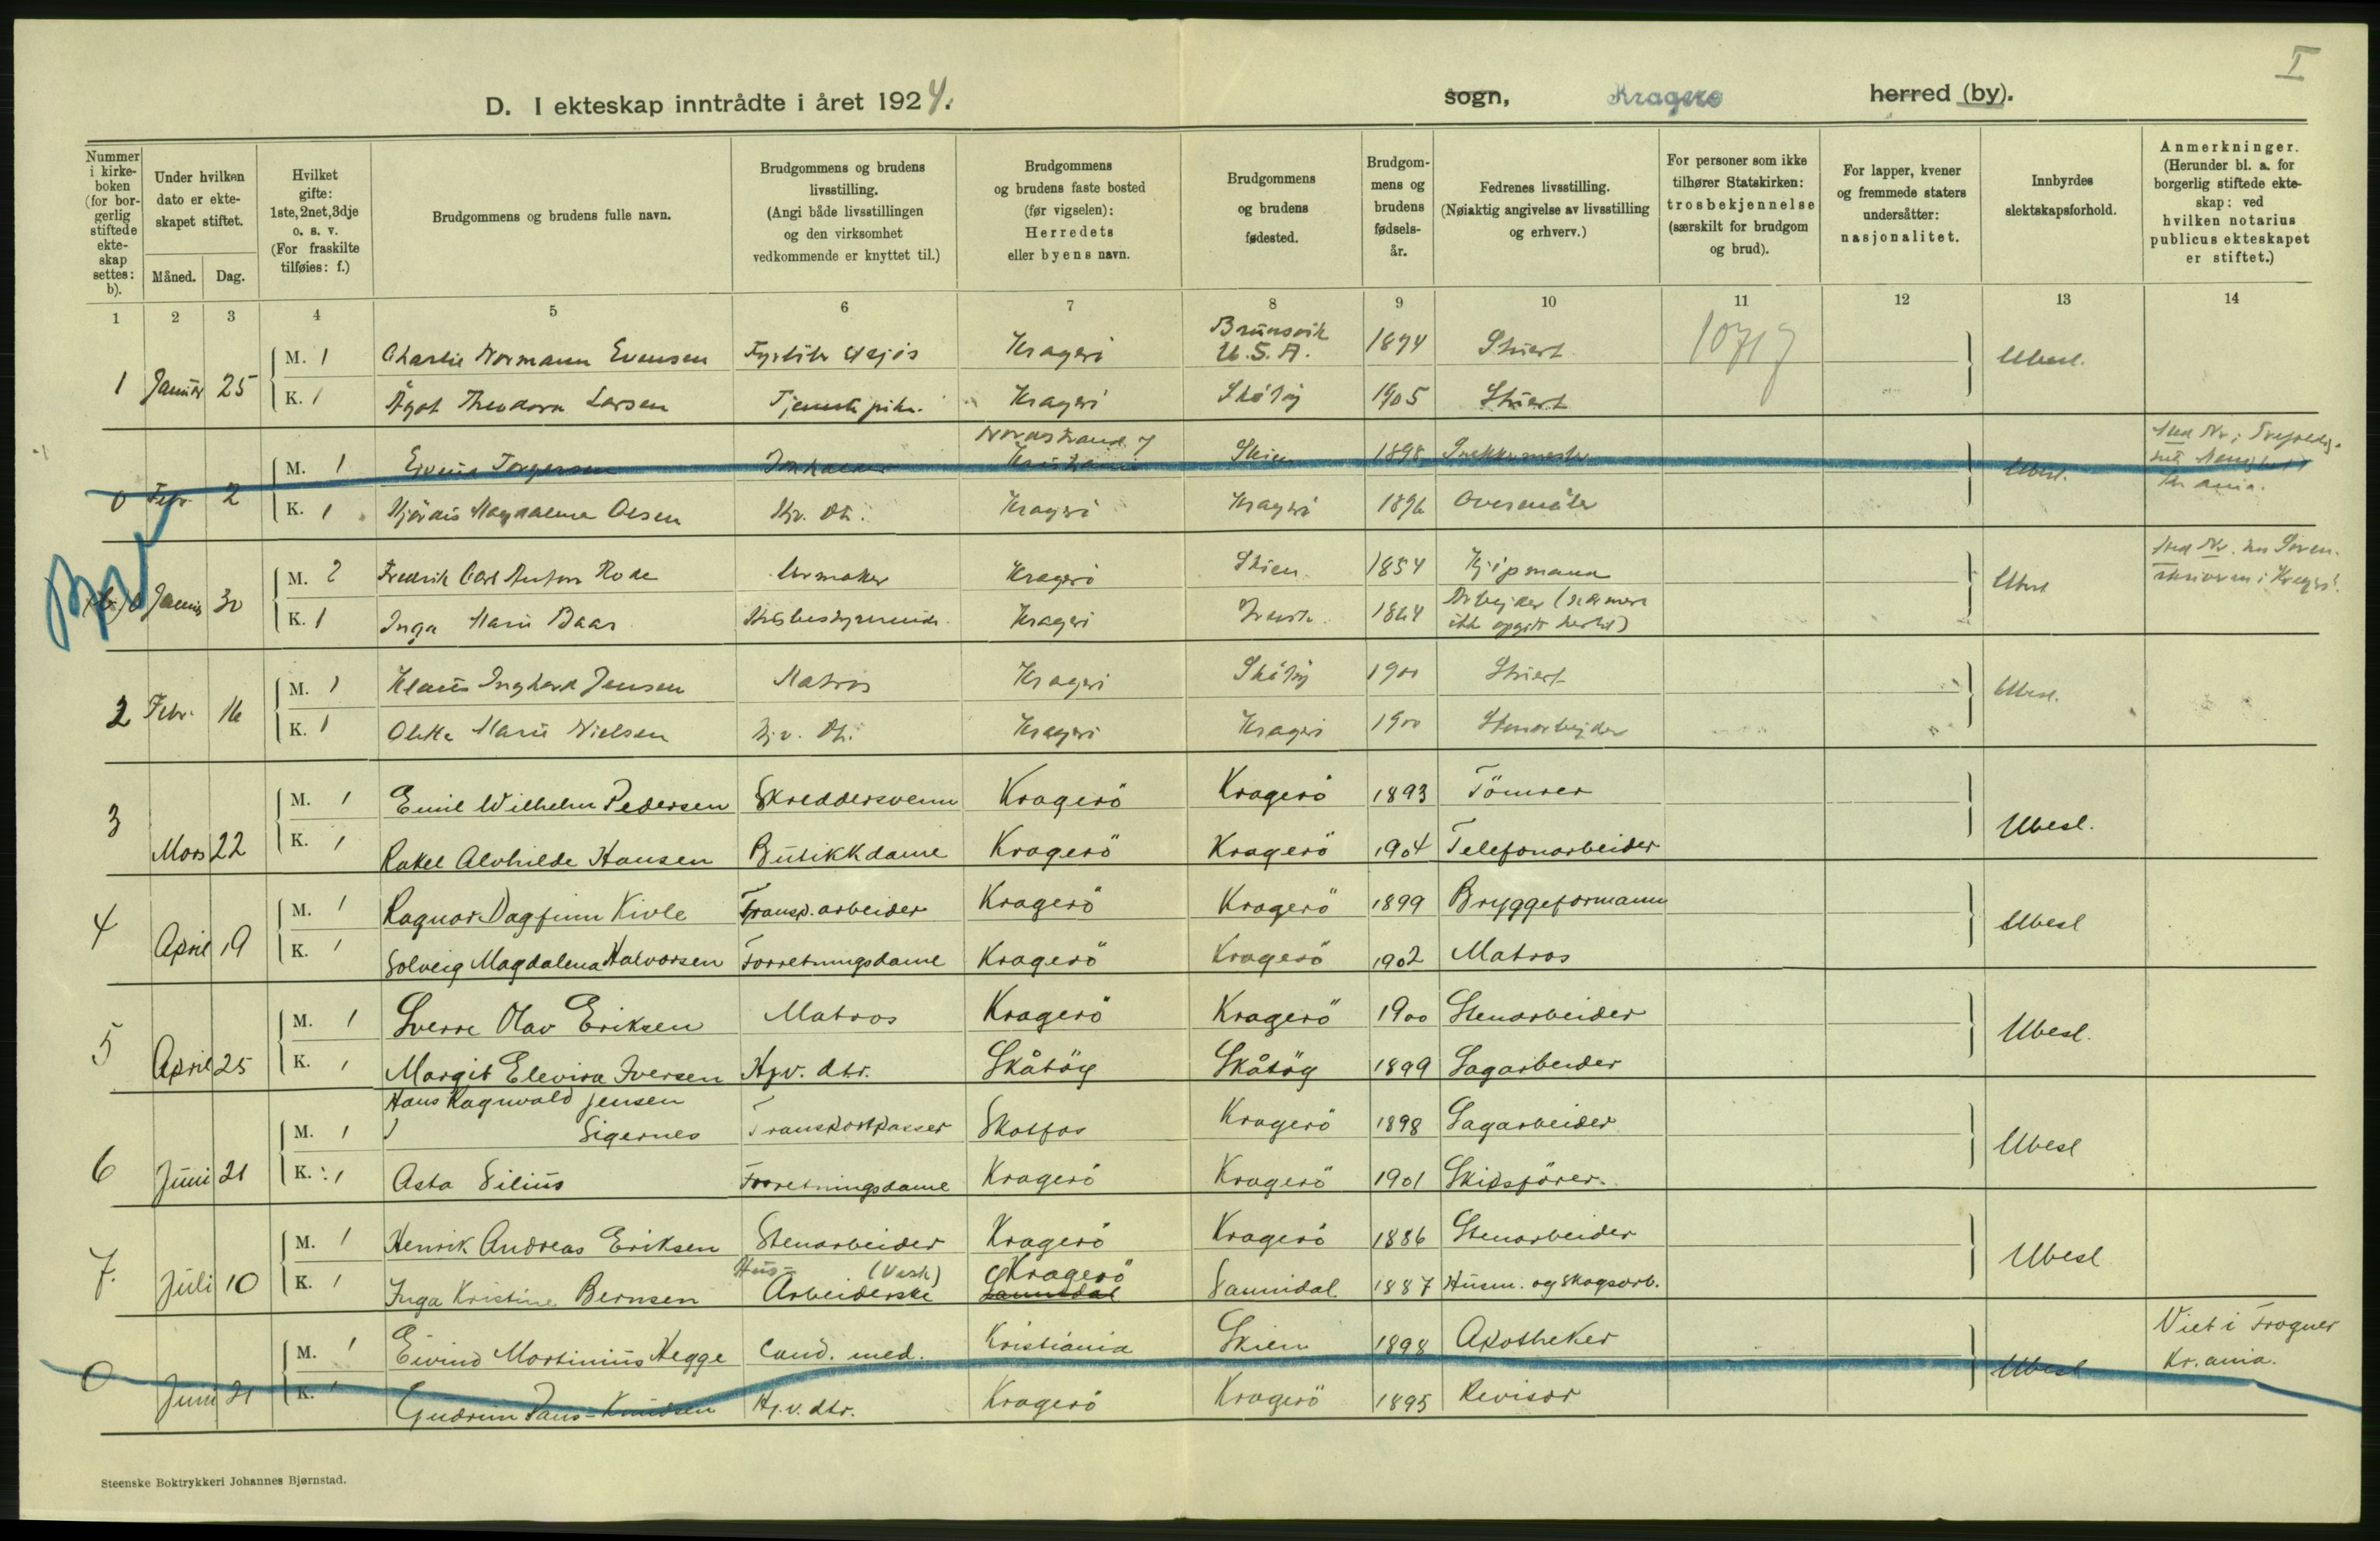 I
D. I ekteskap inntrådte i året 1924.
sogn, Kragerø herred (by).
Nummer i kirkeboken (for borgerlig stiftede ekteskap settes: b).
Under hvilken dato er ekteskapet stiftet.
Måned. Dag.
Hvilket gifte: 1ste, 2net, 3dje o. s. v. (For fraskilte tilføies: f.)
Brudgommens og brudens fulle navn.
Brudgommens og brudens livsstilling. (Angi både livsstillingen og den virksomhet vedkommende er knyttet til.)
Brudgommens og brudens faste bosted (før vigselen): Herredets eller byens navn.
Brudgommens og brudens fødested.
Brudgommens og brudens fødselsår.
Fedrenes livsstilling. (Nøiaktig angivelse av livsstilling og erhverv.)
For personer som ikke tilhører Statskirken: trosbekjennelse (særskilt for brudgom og brud).
For lapper, kvener og fremmede staters undersåtter: nasjonalitet.
Innbyrdes slektskapsforhold.
Anmerkninger. (Herunder bl. a. for borgerlig stiftede ekteskap: ved hvilken notarius publicus ekteskapet er stiftet.)
1 2 3 4 5 6 7 8 9 10 11 12 13 14
1 Januar 25 M. 1 Charlie Normann Evensen Kragerø U. S. A. 1894 10717 Ubesl.
K. 1 Ågot Theodora Larsen Kragerø Skåtøy 1905
0 Febr. 2 M. 1 Torgersen Skien 1898 Ubesl.
K. 1 Hjørdis Magdalena Olsen Hjv. dtr. Kragerø Kragerø 1896
Januar 30 M. 2 Fredrik Carl Anton Rode Urmaker Kragerø Skien 1854 Kjøpmann Ubesl
K. 1 Inga Marie Baar Husbestyrerinde Kragerø 1864
2 Febr. 16 M. 1 Klaus Inghard Jensen Matros Kragerø Skåtøy 1900 Ubesl.
K. 1 Marie Nielsen Hjv. dtr. Kragerø Kragerø 1900 Stenarbejder
3 Mars 22 M. 1 Emil Wilhelm Pedersen Skreddersvenn Kragerö Kragerö 1893 Tömrer Ubesl.
K. 1 Rakel Alvhilde Hansen Butikkdame Kragerö Kragerö 1904 Telefonarbeider
4 April 19 M. 1 Ragnar Dagfinn Kivle Transp. arbeider Kragerö Kragerö 1899 Bryggeformann Ubesl
K. 1 Solveig Magdalena Halvorsen Forretningsdame Kragerö Kragerö 1902 Matros
5 April 25 M. 1 Sverre Olav Eriksen Matros Kragerö Kragerö 1900 Stenarbeider Ubesl.
K. 1 Margit Elevira Iversen Hjv. dtr. Skåtöy Skåtöy 1899 Sagarbeider
Hans Ragnvald Jensen
6 Juni 21 M. 1 Sigernes Transportpasser Skotfos Kragerö 1898 Sagarbeider Ubesl
K. 1 Asta Silius Forretningsdame Kragerö Kragerö 1901 Skipsförer.
7. Juli 10 M. 1 Henrik Andreas Eriksen Stenarbeider Kragerö Kragerö 1886 Stenarbeider Ubesl
Hus- (Vask) Kragerö
K. 1 Inga Kristine Bernsen Arbeiderske Sannidal Sannidal 1887 Husm. og skogsarb.
0 Juni 21 M. 1 Eivind Martinius Hegge Cand. med. Kristiania Skien 1898 Apotheker Ubesl Viet i Frogner Kr.ania.
K. 1 Gudrun Paus-Knudsen Hj.v. dtr. Kragerö Kragerö 1895 Revisor
Steenske Boktrykkeri Johannes Bjørnstad.